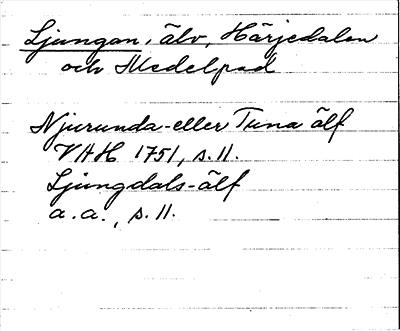 Ljungan, älv, Härjedalen
och Medelpad
Njurunda- eller Tuna älf
VAH 1751, s. 11.
Ljungdals-älf
a. a., s. 11.